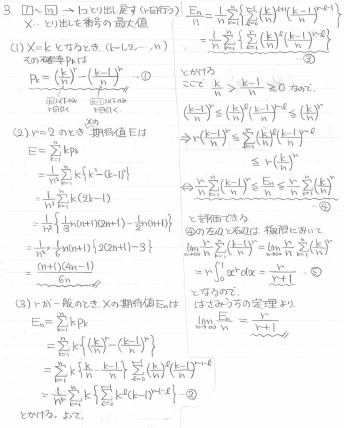 3. 1~n → 1つとり出し戻す(r回行う)
X…とり出した番号の最大値
(1) X=k となるとき、(k=1,2,…,n)
その確率Pkは
Pk = (k/n)^r - ((k-1)/n)^r …①
k以下のみr回引く. k-1以下のみr回引く.
(2) r=2 のとき Xの期待値Eは
E = Σ_{k=1}^{n} k Pk
= 1/n² Σ_{k=1}^{n} k{k²-(k-1)²}
= 1/n² Σ_{k=1}^{n} k(2k-1)
= 1/n² {1/3 n(n+1)(2n+1) - 1/2 n(n+1)}
= 1/n² × 1/6 n(n+1){2(2n+1)-3}
= (n+1)(4n-1)/6n
(3) rが一般のとき、Xの期待値Enは
En = Σ_{k=1}^{n} k Pk
= Σ_{k=1}^{n} k{(k/n)^r - ((k-1)/n)^r}
= Σ_{k=1}^{n} k{k/n - (k-1)/n} Σ_{l=0}^{r-1} (k/n)^l ((k-1)/n)^{r-1-l}
= 1/n^r Σ_{k=1}^{n} k{Σ_{l=0}^{r-1} k^l (k-1)^{r-1-l}} …②
とかける。よって、
En/n = 1/n Σ_{k=1}^{n} {Σ_{l=0}^{r-1} (k/n)^{l+1} ((k-1)/n)^{r-l-1}}
= 1/n Σ_{k=1}^{n} {Σ_{l=1}^{r} (k/n)^l ((k-1)/n)^{r-l}}
…③
とかける
ここで k/n > (k-1)/n ≧ 0 なので、
((k-1)/n)^r ≦ (k/n)^l ((k-1)/n)^{r-l} ≦ (k/n)^r
⇒ r((k-1)/n)^r ≦ Σ_{l=1}^{r} (k/n)^l ((k-1)/n)^{r-l}
≦ r(k/n)^r
⇔ r/n Σ_{k=1}^{n} ((k-1)/n)^r ≦ En/n ≦ r/n Σ_{k=1}^{n} (k/n)^r
…④
と評価できる
④の左辺と右辺は、極限において、
lim_{n→∞} r/n Σ_{k=1}^{n} ((k-1)/n)^r = lim_{n→∞} r/n Σ_{k=1}^{n} (k/n)^r
= r∫_0^1 x^r dx = r/(r+1) …⑤
となるので、
はさみうちの定理より、
lim_{n→∞} En/n = r/(r+1)